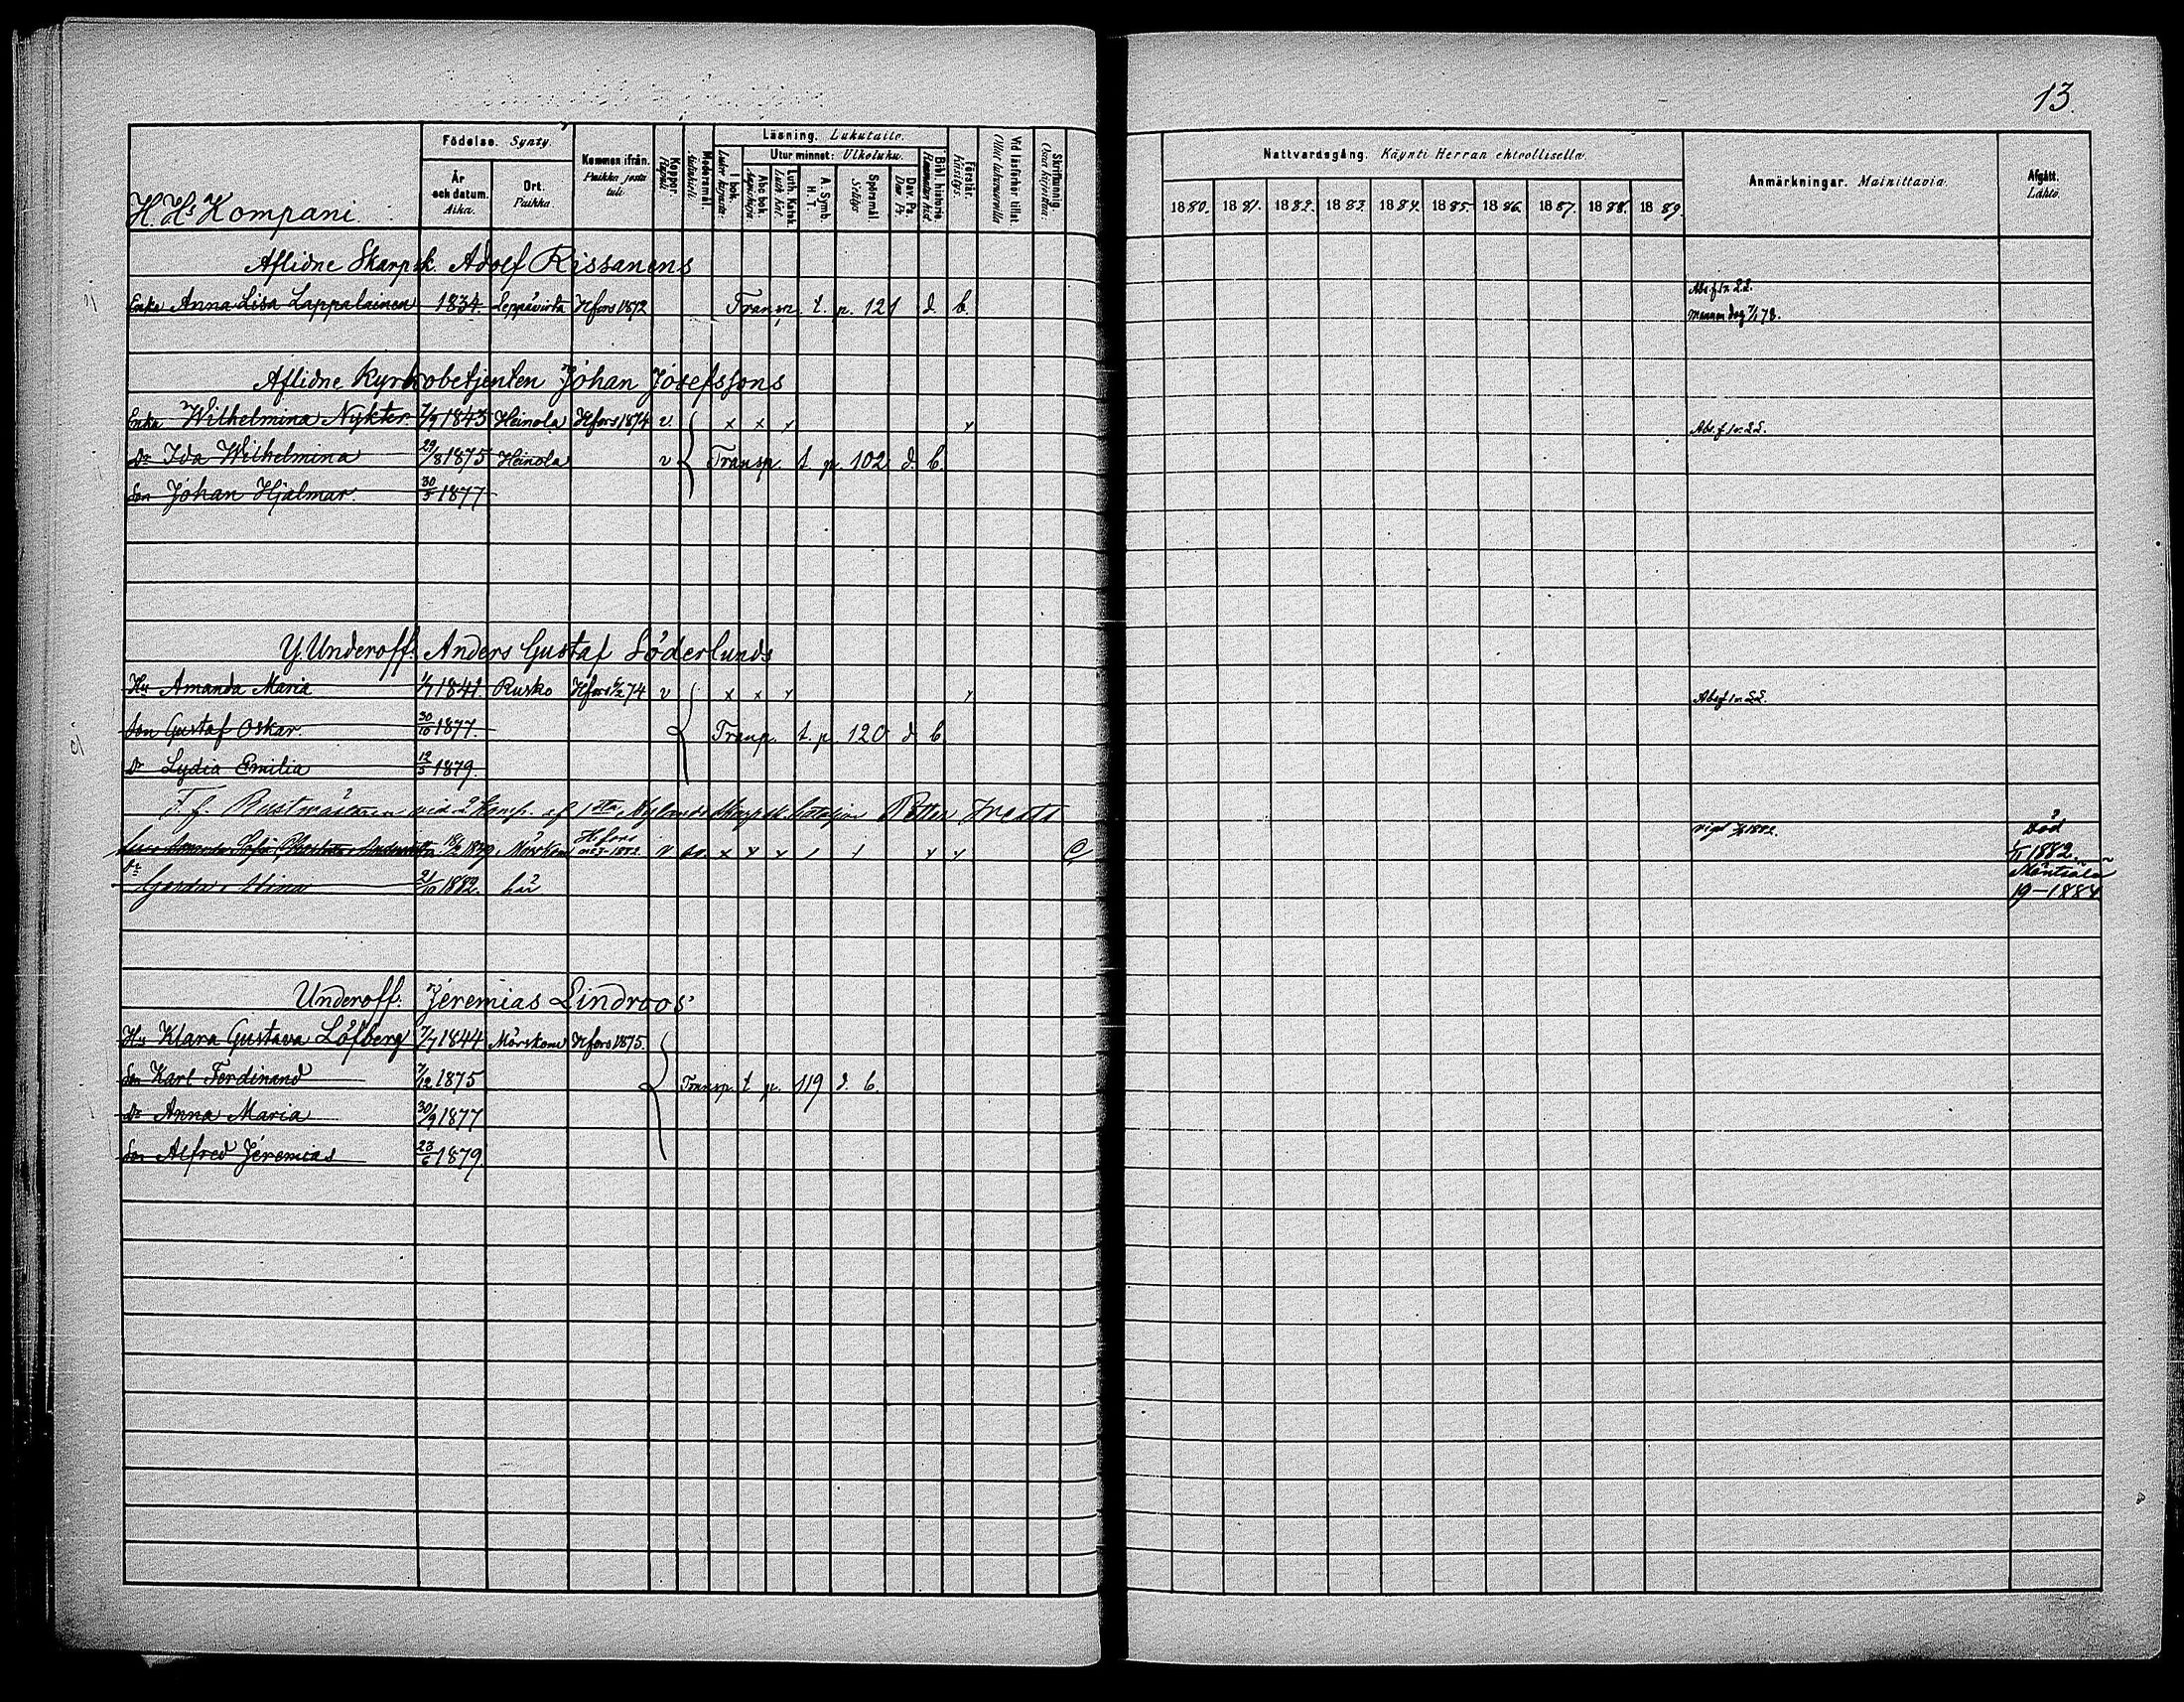 13.
H. Hs Kompani.
Födelse. Synty.
År och datum. Aika.
Ort. Paikka.
Kommen ifrån. Paikka josta tuli
Koppor. Rupuli.
Modersmål. Äidinkieli.
Läsning. Lukutaito.
I bok. Lukee kirjasta.
Utur minnet: Ulkoluku.
Abc bok. Aapiskirja
Luth. Katek. Luth. kat.
A. Symb. H. T.
Spörsmål. Selitys
Dav. Ps. Daw. Ps.
Bibl. historia. Raamatun hist.
Förstår. Käsitys.
Vid läsförhör tillst. Ollut lukuvuorolla
Skrifkunnig. Osaa kirjoittaa.
Nattvardsgång. Käynti Herran ehtoollisella.
1880. 1881. 1882. 1883 1884. 1885. 1886. 1887. 1888. 1889.
Anmärkningar. Mainittavia
Afgått. Lähtö.
Aflidne Skarpsk. Adolf Rissanens
Enka Anna Lisa Lappalainen 1834. Leppävirta Hfors 1872 Transp. t. p. 121 d. b. Abs. f. lr. 22.
Mannen dog 7/1 78.
Aflidne Kyrkobetjenten Johan Josefssons
Enka Wilhelmina Nykter. 7/9 1843 Heinola Hfors 1874 v. x x x x Abs. f lr. 22.
Dr Ida Wilhelmina 29/8 1875 Heinola v Transp. t p. 102 d. b.
Son Johan Hjalmar. 30/5 1877
Y. Underoff. Anders Gustaf Söderlunds
Hu Amanda Maria 1/7 1841. Rusko Hfors 6/2 74 v x x x x Abs f lr 22.
Son Gustaf Oskar. 30/10 1877. Transp. t. p. 120 d b
Dr Lydia Emilia 12/5 1879.
T. f. Rustmästaren vid 2 Komp. af 1sta Nylands Skarpsk. bataljon Petter
Sofia 1839 Mörskom Hfors 1882. v x x x x x 1882. Död
1882.
Dr Gerda Stina 21/10 1882. här Mäntsälä
19-1884.
Underoff. Jeremias Lindroos'
Hu Klara Gustava Löfberg 7/7 1844 Mörskom Hfors 1875.
Son Karl Ferdinand 7/12 1875 Transp. t p. 119 d. b.
Dr Anna Maria 30/9 1877
Son Alfred Jeremias 23/6 1879.